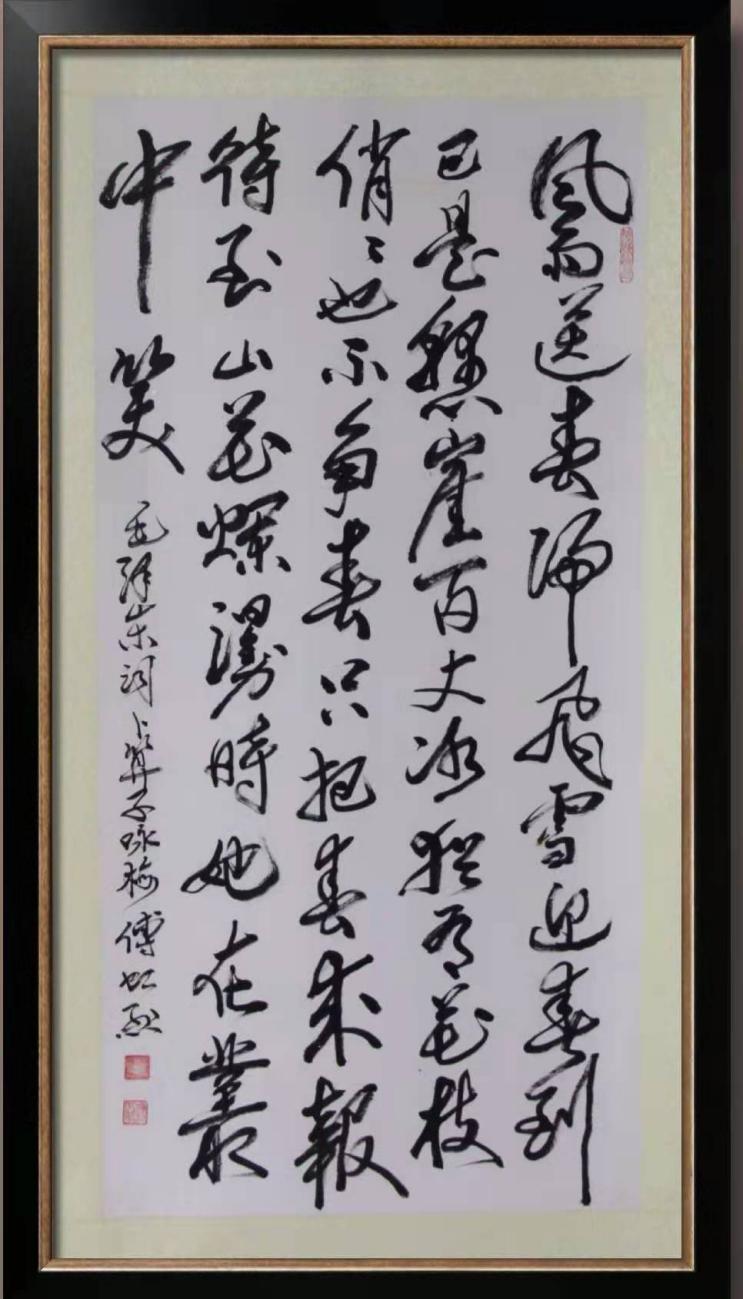 風雨送春歸飛雪迎春到
已是懸崖百丈冰猶有花枝
俏〻也不爭春只把春來報
待到山花爛漫時她在叢
中笑
毛澤東詞卜算子咏梅傅